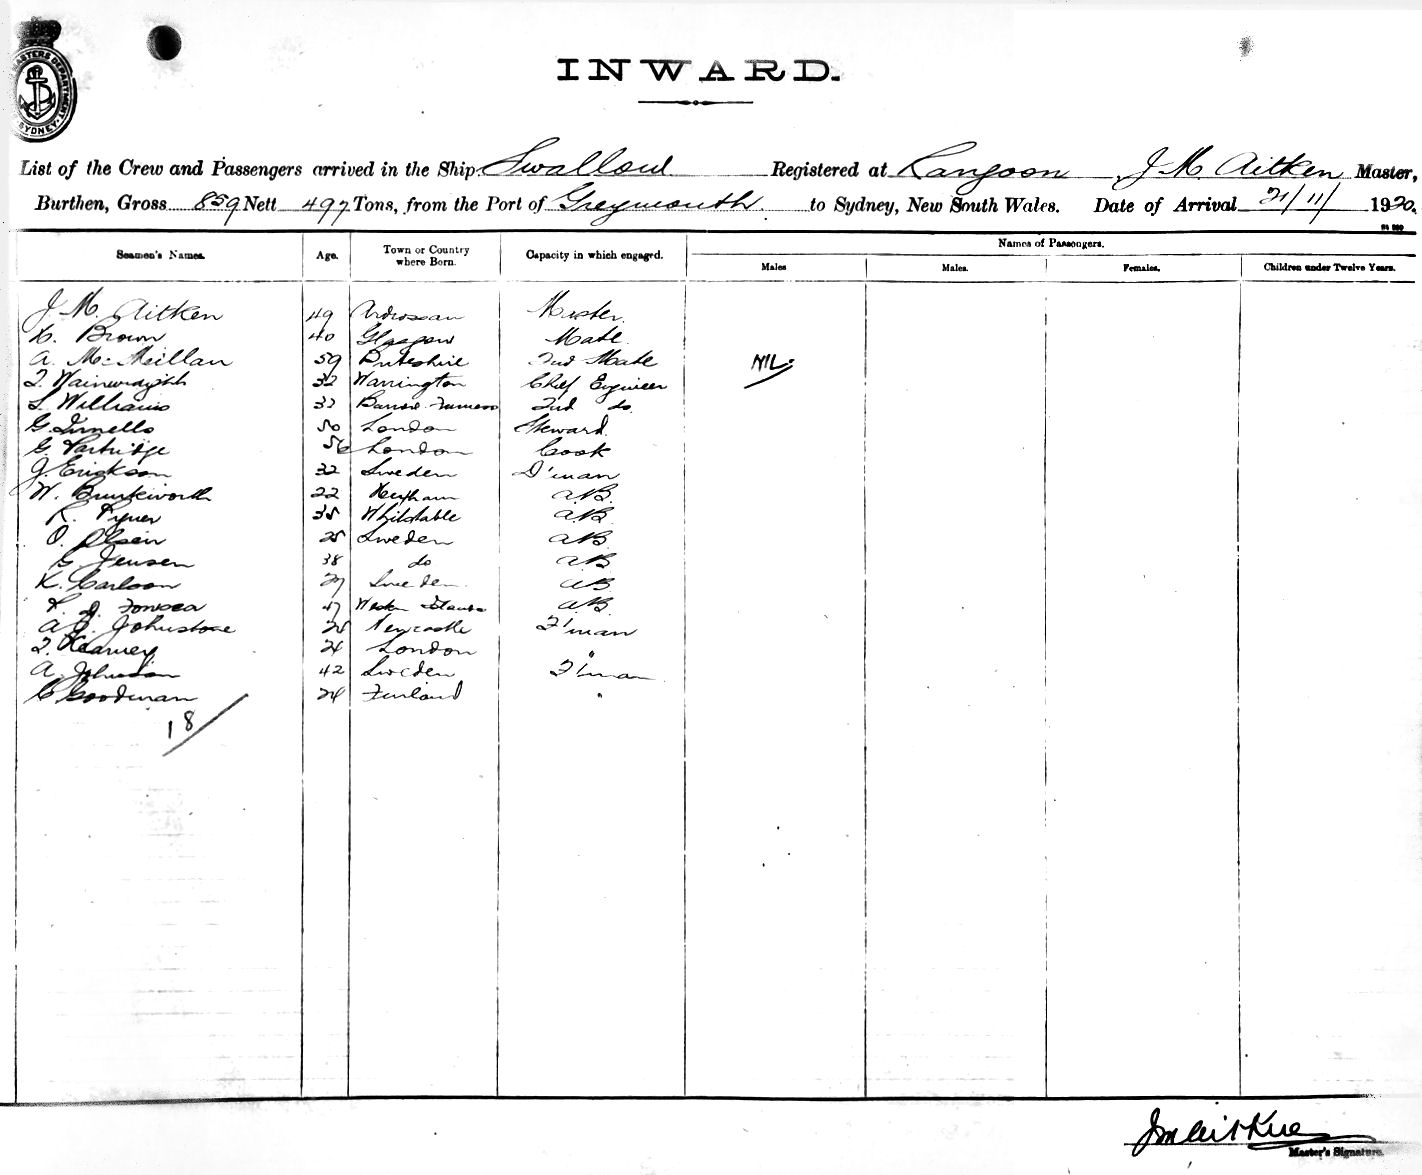 MASTERS DEPARTMENT SYDNEY
INWARD.
List of the Crew and Passengers arrived in the Ship Swallow Registered at Rangoon J M. Aitken Master,
Burthen, Gross 859 Nett 497 Tons, from the Port of Greymouth to Sydney, New South Wales. Date of Arrival 21/11/ 1920.
Seamen's Names. Age. Town or Country where Born. Capacity in which engaged. Names of Passengers.
Males Males. Females. Children under Twelve Years.
J M. Aitken 49 Ardrossan Master.
Brown 40 Glasgow Mate.
A. McMillan 59 Buteshire 2nd Mate NIL.
T. Wainwright 32 Warrington Chief Engineer
L. Williams Barrow Furness 2nd do.
G. 50 London Steward.
G. Partridge 56 London Cook
J. Erickson 32 Sweden D'man
W. 22 Hexham A.B.
R. 35 Whitstable A.B.
O. Olsen 25 Sweden A.B.
G. Jensen 38 do A.B.
K. Carlson 27 Sweden. A.B.
Fonseca 47 Western Islands A.B.
A. J. Johnstone Newcastle F'man
T. Kearney London "
A. Johnston 42 Sweden F'man
C Goodman Finland "
18/
J M Aitken
Master's Signature.